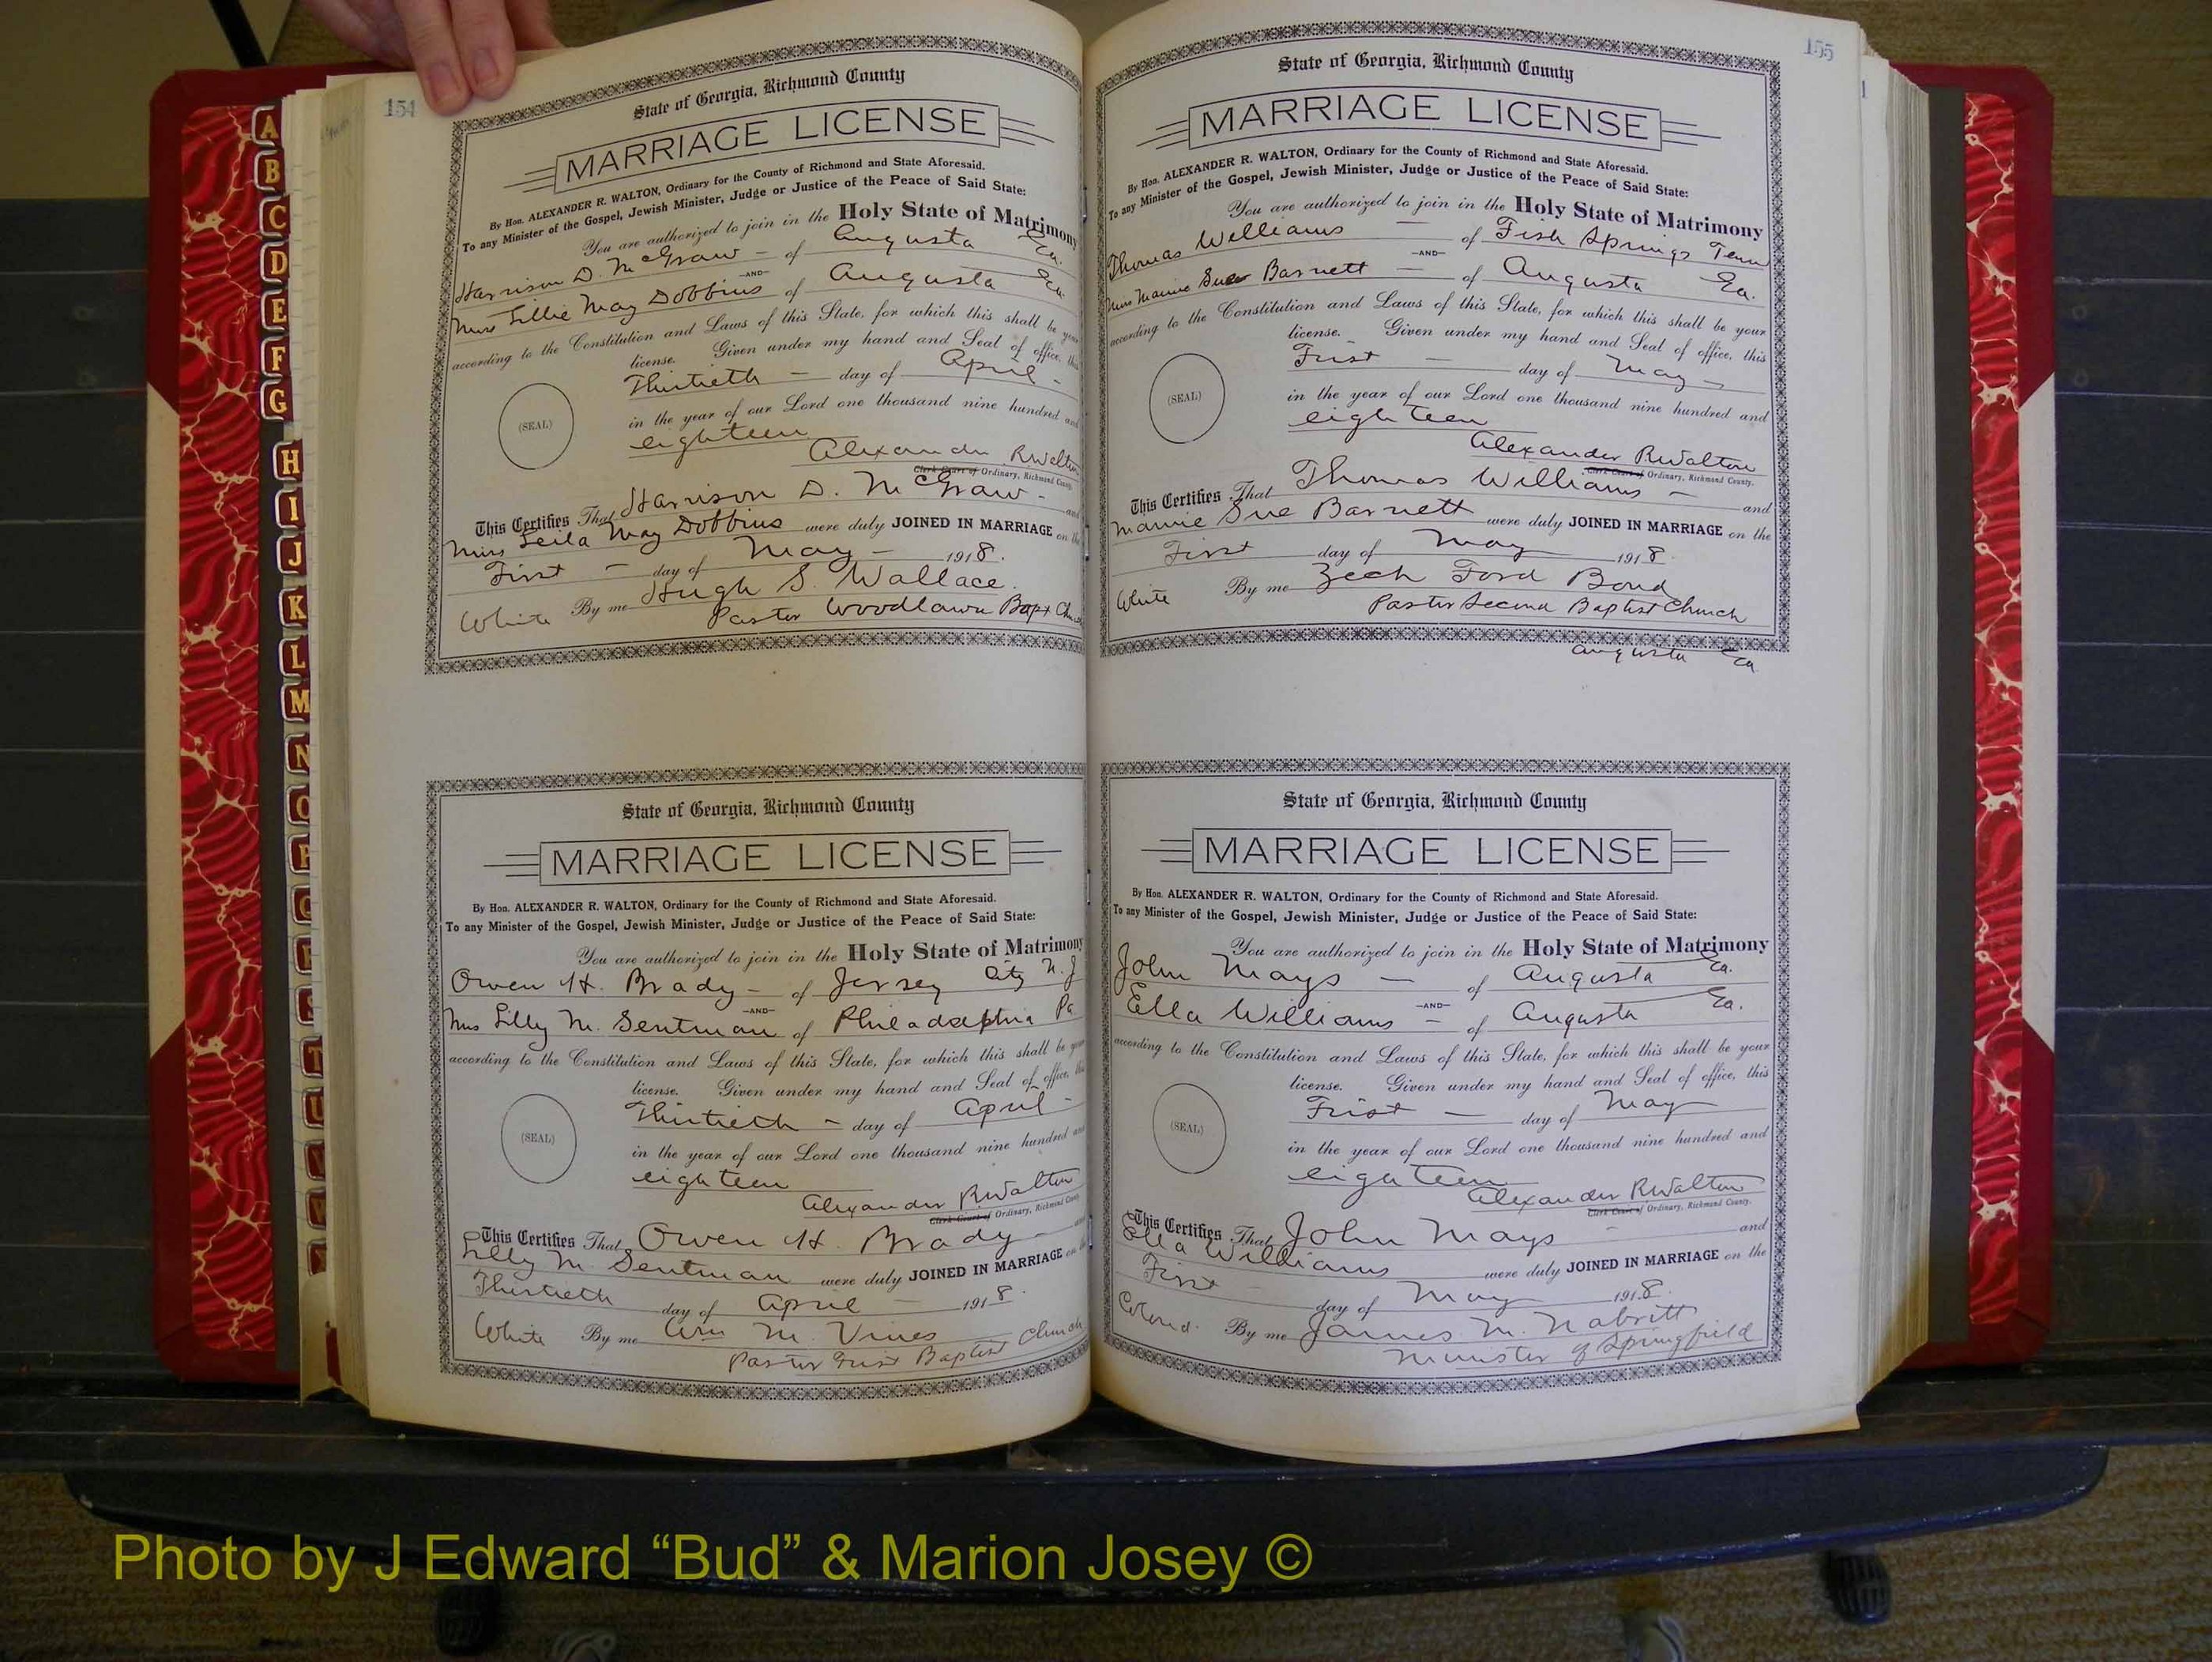 154
State of Georgia, Richmond County
MARRIAGE LICENSE
By Hon. ALEXANDER R. WALTON, Ordinary for the County of Richmond and State Aforesaid.
To any Minister of the Gospel, Jewish Minister, Judge or Justice of the Peace of Said State:
You are authorized to join in the Holy State of Matrimony
Harrison D. McGraw - of Augusta Ga.
-AND-
Miss Lillie May Dobbins of Augusta Ga.
according to the Constitution and Laws of this State, for which this shall be your
license. Given under my hand and Seal of office, this
Thirtieth - day of April -
(SEAL)
in the year of our Lord one thousand nine hundred and
eighteen
Alexander R Walton
Clerk Court of Ordinary, Richmond County.
This Certifies That Harrison D. McGraw - and
Miss Leila May Dobbins were duly JOINED IN MARRIAGE on the
First - day of May - 1918.
White By me Hugh S. Wallace.
Pastor Woodlawn Bapt Chu
State of Georgia, Richmond County
MARRIAGE LICENSE
By Hon. ALEXANDER R. WALTON, Ordinary for the County of Richmond and State Aforesaid.
To any Minister of the Gospel, Jewish Minister, Judge or Justice of the Peace of Said State:
You are authorized to join in the Holy State of Matrimony
Owen H. Brady - of Jersey City N.J
-AND-
Mrs Lilly M. Sentman of Philadelphia Pa
according to the Constitution and Laws of this State, for which this shall be your
license. Given under my hand and Seal of office, this
Thirtieth - day of April -
(SEAL)
in the year of our Lord one thousand nine hundred and
eighteen
Alexander R Walton
Clerk Court of Ordinary, Richmond County
This Certifies That Owen H. Brady - and
Lilly M. Sentman were duly JOINED IN MARRIAGE on the
Thirtieth day of April - 1918.
White By me Wm M. Vines
Pastor First Baptist Church
155
State of Georgia, Richmond County
MARRIAGE LICENSE
By Hon. ALEXANDER R. WALTON, Ordinary for the County of Richmond and State Aforesaid.
To any Minister of the Gospel, Jewish Minister, Judge or Justice of the Peace of Said State:
You are authorized to join in the Holy State of Matrimony
Thomas Williams - of Fish Springs Tenn
-AND-
Miss Mamie Sue Barnett - of Augusta Ga.
according to the Constitution and Laws of this State, for which this shall be your
license. Given under my hand and Seal of office, this
First - day of May -
(SEAL)
in the year of our Lord one thousand nine hundred and
eighteen
Alexander R Walton
Clerk Court of Ordinary, Richmond County.
This Certifies That Thomas Williams - and
Mamie Sue Barnett were duly JOINED IN MARRIAGE on the
First day of May 1918.
White By me Zech Ford Bond
Pastor Second Baptist Church
Augusta Ga
State of Georgia, Richmond County
MARRIAGE LICENSE
By Hon. ALEXANDER R. WALTON, Ordinary for the County of Richmond and State Aforesaid.
To any Minister of the Gospel, Jewish Minister, Judge or Justice of the Peace of Said State:
You are authorized to join in the Holy State of Matrimony
John Mays - of Augusta Ga.
-AND-
Ella Williams - of Augusta Ga.
according to the Constitution and Laws of this State, for which this shall be your
license. Given under my hand and Seal of office, this
First - day of May
(SEAL)
in the year of our Lord one thousand nine hundred and
eighteen
Alexander R Walton
Clerk Court of Ordinary, Richmond County.
This Certifies That John Mays - and
Ella Williams were duly JOINED IN MARRIAGE on the
First day of May 1918.
Colored. By me James M. Nabritt
Minister of Springfield
A
B
C
D
E
F
G
H
I
J
K
L
M
N
O
P
Q
R
S
T
U
V
W
Photo by J Edward “Bud” & Marion Josey ©